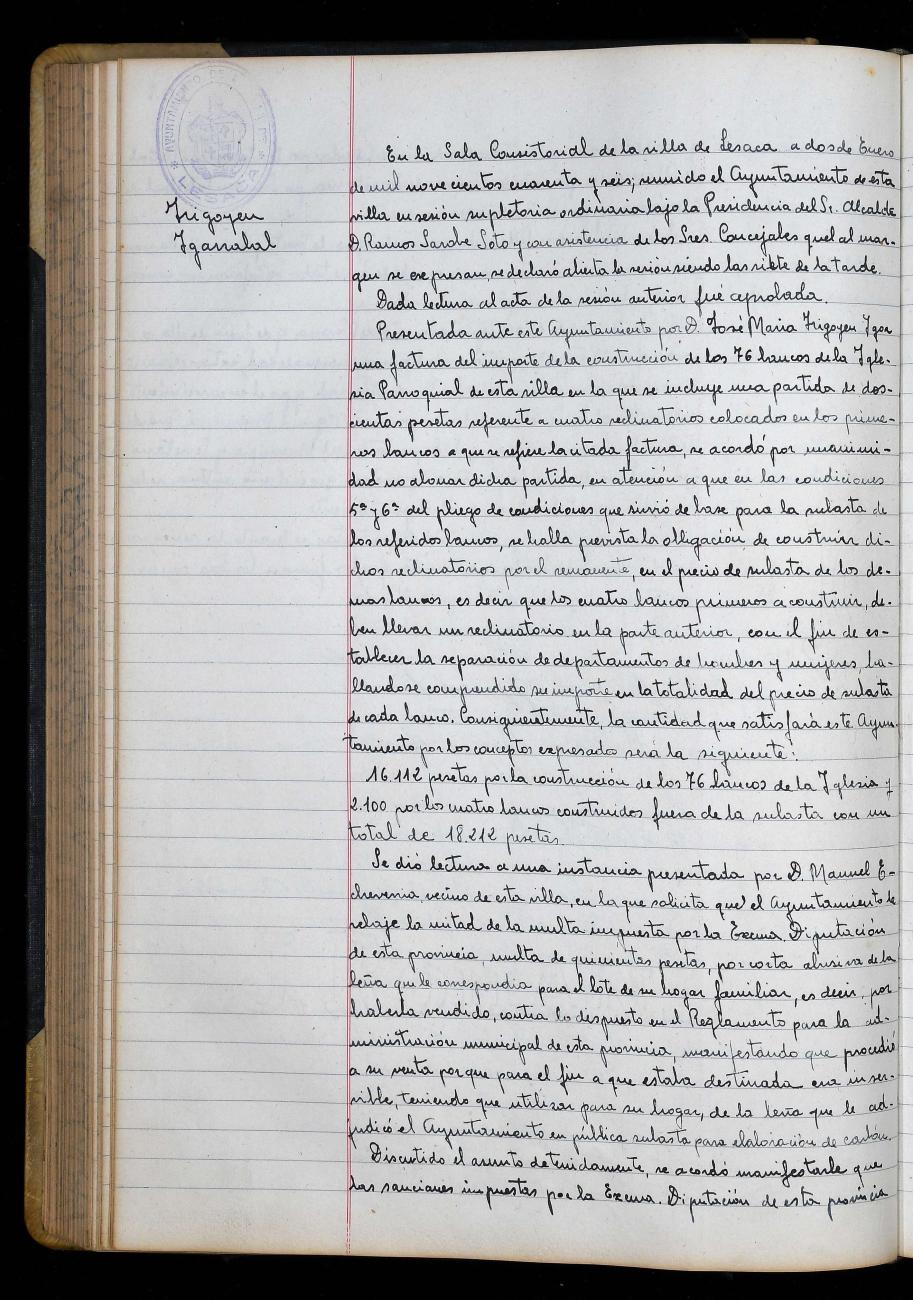 AYUNTAMIENTO DE LA VILLA DE
LESACA
Irigoyen
Iganabal
En la Sala Consistorial de la villa de Lesaca a dos de Enero
de mil novecientos cuarenta y seis; reunido el Ayuntamiento de esta
villa en sesión supletoria ordinaria bajo la Presidencia del Sr. Alcalde
D. Ramos Sarobe Soto y con asistencia de los Sres. Concejales quel al mar-
gen se expresan, se declaró abierta la sesión siendo las siete de la tarde.
Dada lectura al acta de la sesión anterior fué aprobada.
Presentada ante este Ayuntamiento por D. José Maria Irigoyen Igoa
una factura del importe de la construcción de los 76 bancos de la Igle-
sia Parroquial de esta villa en la que se incluye una partida de dos-
cientas pesetas referente a cuatro reclinatorios colocados en los prime-
ros bancos a que se refiere la citada factura, se acordó por unanimi-
dad no abonar dicha partida, en atención a que en las condiciones
5ª y 6ª del pliego de condiciones que sirvió de base para la subasta de
los referidos bancos, se halla prevista la obligación de construir di-
chos reclinatorios por el remanente, en el precio de subasta de los de-
mas bancos, es decir que los cuatro bancos primeros a construir, de-
ben llevar un reclinatorio en la parte anterior, con el fin de es-
tablecer la separación de departamentos de hombres y mujeres, ha-
llandose comprendido su importe en la totalidad del precio de subasta
de cada banco. Consiguientemente, la cantidad que satisfará este Ayun-
tamiento por los conceptos expresados será la siguiente:
16.112 pesetas por la construcción de los 76 bancos de la Iglesia y
2.100 por los cuatro bancos construidos fuera de la subasta con un
total de 18.212 pesetas.
Se dió lectura a una instancia presentada por D. Manuel E-
cheverria, vecino de esta villa, en la que solicita que el Ayuntamiento le
rebaje la mitad de la multa impuesta por la Excma. Diputación
de esta provincia, multa de quinientas pesetas, por corta abusiva de la
leña que le correspondia para el lote de su hogar familiar, es decir, por
haberla vendido, contra lo dispuesto en el Reglamento para la ad-
ministración municipal de esta provincia, manifestando que procedió
a su venta porque para el fin a que estaba destinada era inser-
vible, teniendo que utilizar para su hogar, de la leña que le ad-
judicó el Ayuntamiento en pública subasta para elaboración de carbón.
Discutido el asunto detenidamente, se acordó manifestarle que
las sanciones impuestas por la Excma. Diputación de esta provincia